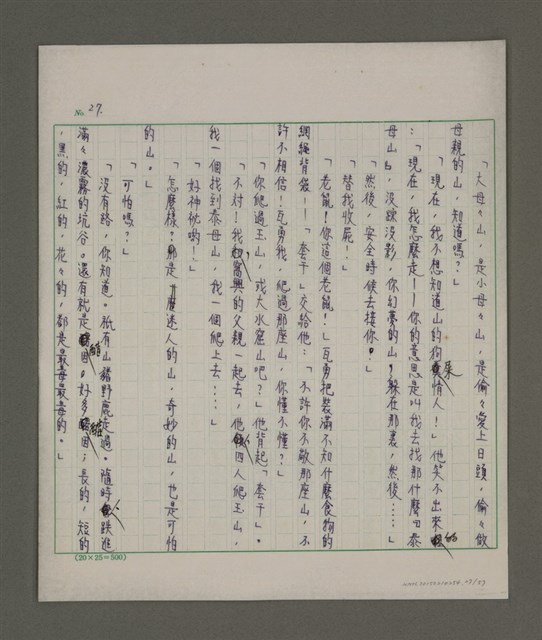 No. 27.
「大母々山，是小母々山，是偷々愛上日頭，偷々做
母親的山，知道嗎？」
「現在，我不想知道山的狗屎情人！」他笑不出來
：「現在，我怎麼走——你的意思是叫我去找那什麼曰泰
母山，沒蹤沒影，你幻夢的山，躲在那裏，然後……」
「然後，安全時候去接你。」
「替我收屍！」
「老鼠！你這個老鼠！」瓦勇把裝滿不知什麼食物的
網繩背袋——「套干」交給他：「不許你不敬那座山，不
許不相信！瓦勇我，爬過那座山，你懂不懂？」
「你爬過玉山，或大水窟山吧？」他背起「套干」。
「不對！我和富興的父親一起去，他們四人爬玉山，
我一個找到泰母山，我一個爬上去……」
「好神祕喲！」
「怎麼樣？那是什麼迷人的山，奇妙的山，也是可怕
的山。」
「可怕嗎？」
「沒有路，你知道。祇有山豬野鹿走過。隨時跌進
滿々濃霧的坑谷。還有就是龜。好多龜；長的，短的
，黑的，紅的，花々的，都是最毒最毒的。」
(20×25=500)